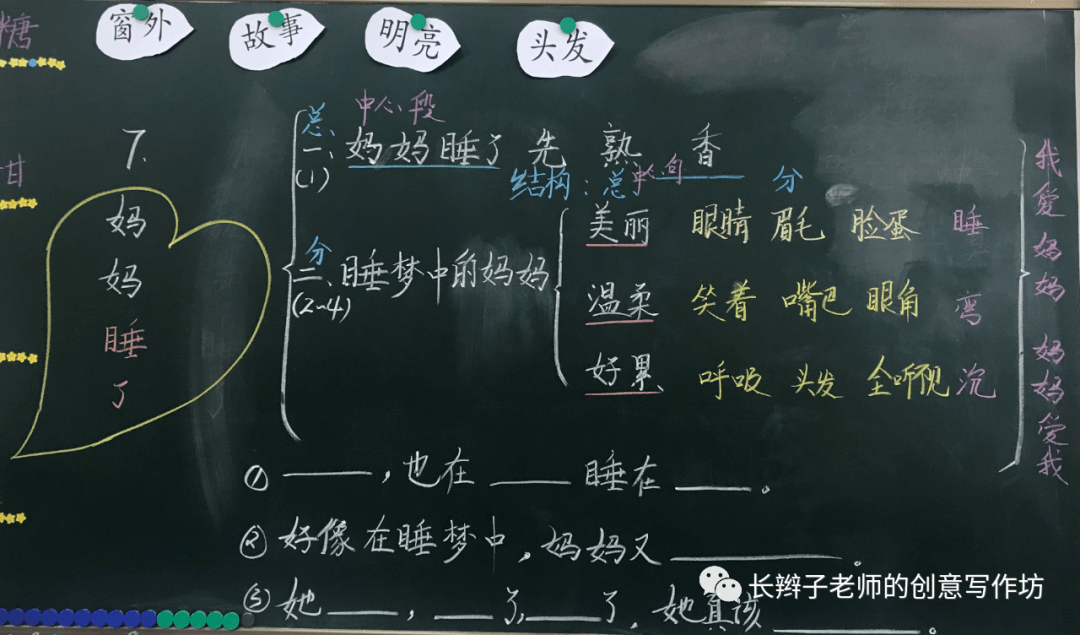 糖
窗外
故事
明亮
头发
甘
7.
妈妈睡了
总 中心段
一、妈妈睡了 先 熟 香
(1)
结构：总 中心句 分
分
二、睡梦中的妈妈
(2~4)
美丽 眼睛 眉毛 脸蛋 睡
温柔 笑着 嘴巴 眼角 弯
好累 呼吸 头发 全听视 沉
我爱妈妈 妈妈爱我
① ____，也在 ____ 睡在 ____。
② 好像在睡梦中，妈妈又 ________。
③ 她 ____，____了，____了，她真该 ________。
长辫子老师的创意写作坊